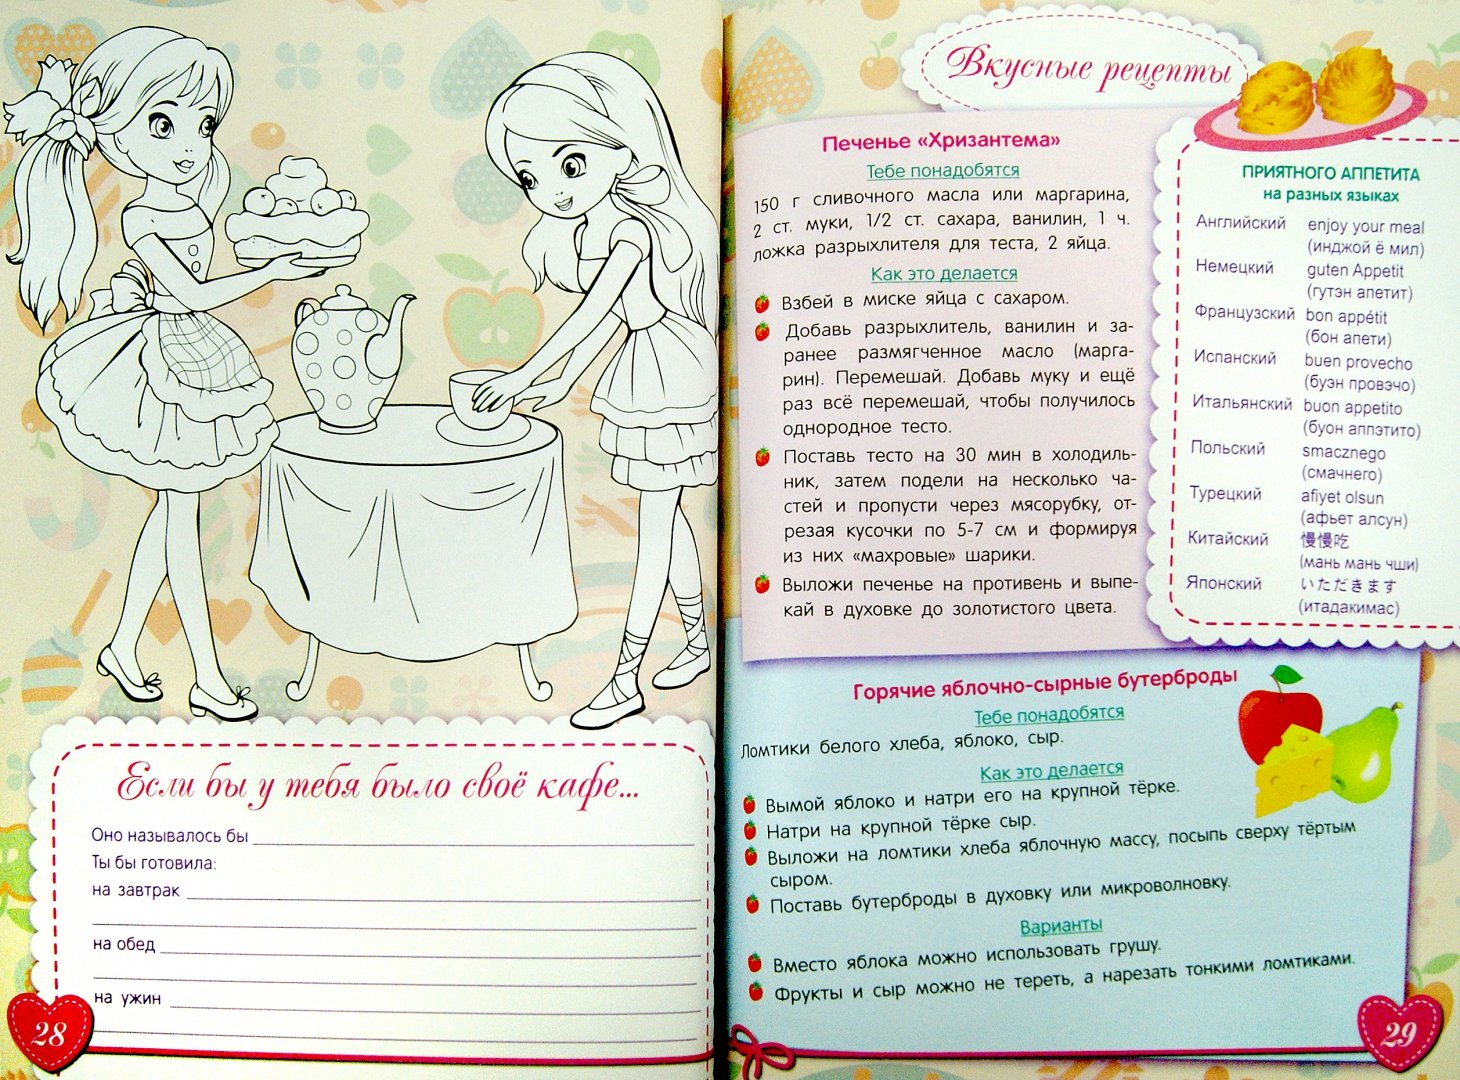 Если бы у тебя было своё кафе...
Оно называлось бы
Ты бы готовила:
на завтрак
на обед
на ужин
28
Вкусные рецепты
Печенье «Хризантема»
Тебе понадобятся
150 г сливочного масла или маргарина,
2 ст. муки, 1/2 ст. сахара, ванилин, 1 ч.
ложка разрыхлителя для теста, 2 яйца.
Как это делается
Взбей в миске яйца с сахаром.
Добавь разрыхлитель, ванилин и за-
ранее размягченное масло (марга-
рин). Перемешай. Добавь муку и ещё
раз всё перемешай, чтобы получилось
однородное тесто.
Поставь тесто на 30 мин в холодиль-
ник, затем подели на несколько ча-
стей и пропусти через мясорубку, от-
резая кусочки по 5-7 см и формируя
из них «махровые» шарики.
Выложи печенье на противень и выпе-
кай в духовке до золотистого цвета.
ПРИЯТНОГО АППЕТИТА
на разных языках
Английский enjoy your meal
(инджой ё мил)
Немецкий guten Appetit
(гутэн апетит)
Французский bon appétit
(бон апети)
Испанский buen provecho
(буэн провэчо)
Итальянский buon appetito
(буон аппэтито)
Польский smacznego
(смачнего)
Турецкий afiyet olsun
(афьет алсун)
Китайский 慢慢吃
(мань мань чши)
Японский いただきます
(итадакимас)
Горячие яблочно-сырные бутерброды
Тебе понадобятся
Ломтики белого хлеба, яблоко, сыр.
Как это делается
Вымой яблоко и натри его на крупной тёрке.
Натри на крупной тёрке сыр.
Выложи на ломтики хлеба яблочную массу, посыпь сверху тёртым
сыром.
Поставь бутерброды в духовку или микроволновку.
Варианты
Вместо яблока можно использовать грушу.
Фрукты и сыр можно не тереть, а нарезать тонкими ломтиками.
29